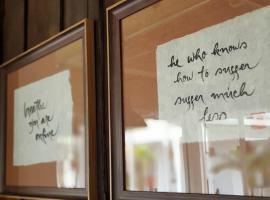 breathe
you are
he who knows
how to suffer
suffer much
less